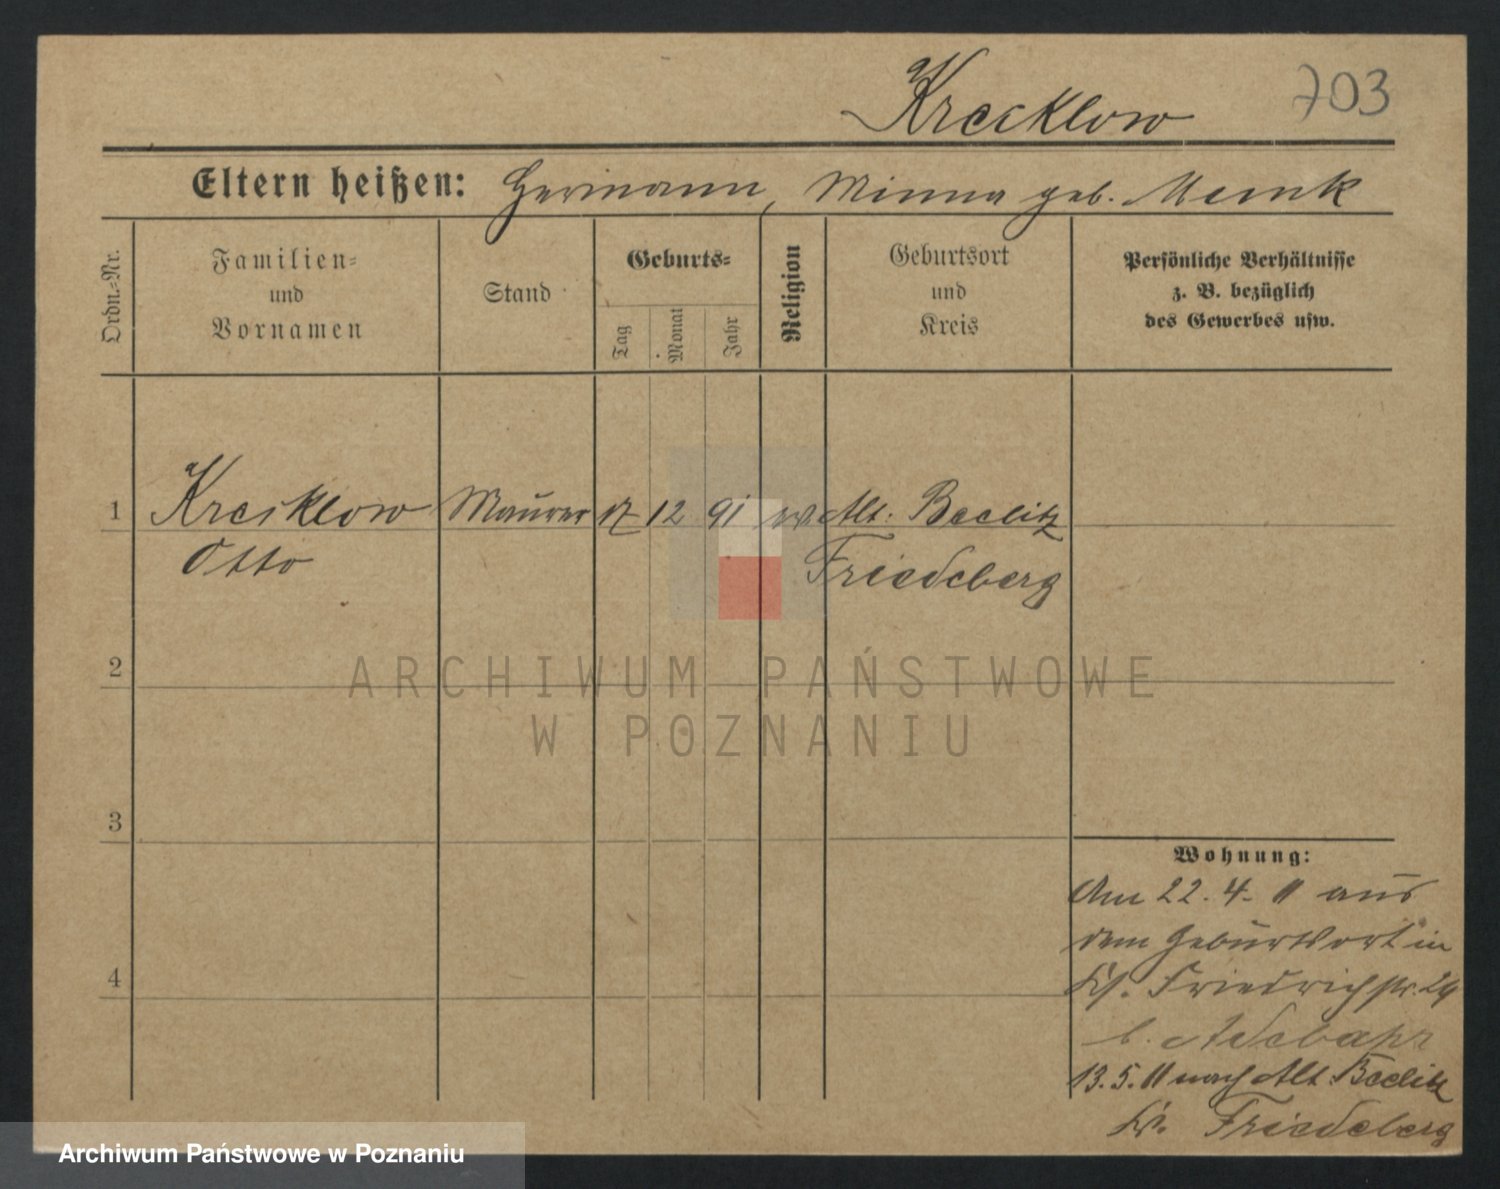 Krecklow 703
Eltern heißen: Hermann, Minna geb. Memk
Ordn.-Nr.
Familien-
und
Vornamen
Stand
Geburts-
Tag
Monat
Jahr
Religion
Geburtsort
und
Kreis
Persönliche Verhältnisse
z. B. bezüglich
des Gewerbes usw.
1 Krecklow Maurer 17 12 91 Alt. Beelitz
Otto Friedeberg
2
3
4
Wohnung:
Am 22. 4. 11 aus
dem Geburtsort in
Friedrichstr. 24
b. Adebahr
13. 5. 11 nach Alt Beelitz
Kr. Friedeberg
ARCHIWUM PAŃSTWOWE
W POZNANIU
Archiwum Państwowe w Poznaniu